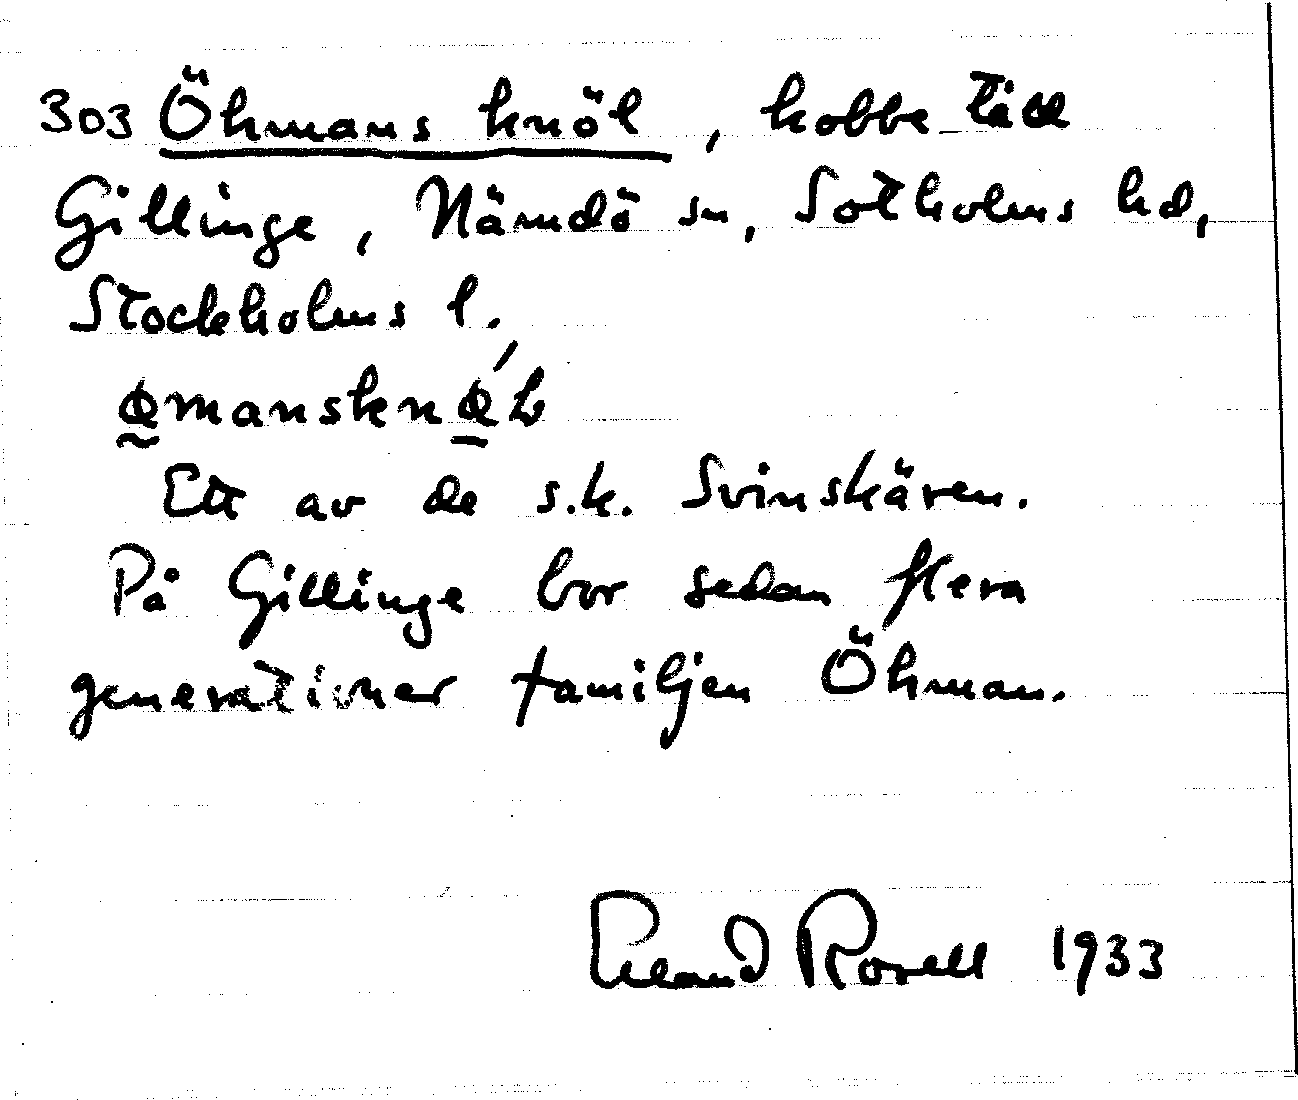 303 Öhmans knöl, kobbe täll
Gillinge, Nämdö sn, Sotholms hd,
Stockholms l.
Ett av de s.k. Svinskären.
På Gillinge bor sedan flera
generationer familjen Öhman.
Erland Rosell 1933